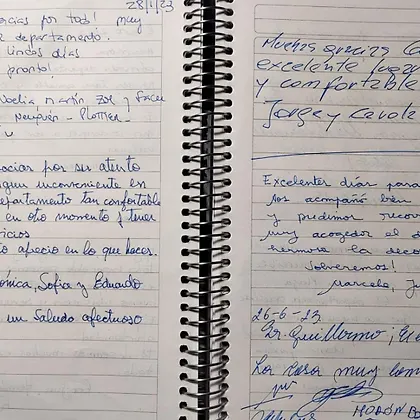 28/1/23
acias por todo! muy
departamento.
lindos días
pronto!
Noelia Martín Zoe y
Neuquén - Plottier.
acias por ser atento
gun inconveniente en
epartamento tan confortable
en oto momento y tener
icios
to aprecio en lo que haces.
ónica, Sofia y Eduardo
un Saludo afectuoso
Muchas gracias
excelente lugar
y comfortable
Jorge y Carola
Excelentes días
nos acompañó bien
y pudimos reco
muy acogedor el d
hermosa la deco
Volveremos!
Marcelo, J
26-6-23
Sr. Guillermo,
La casa muy